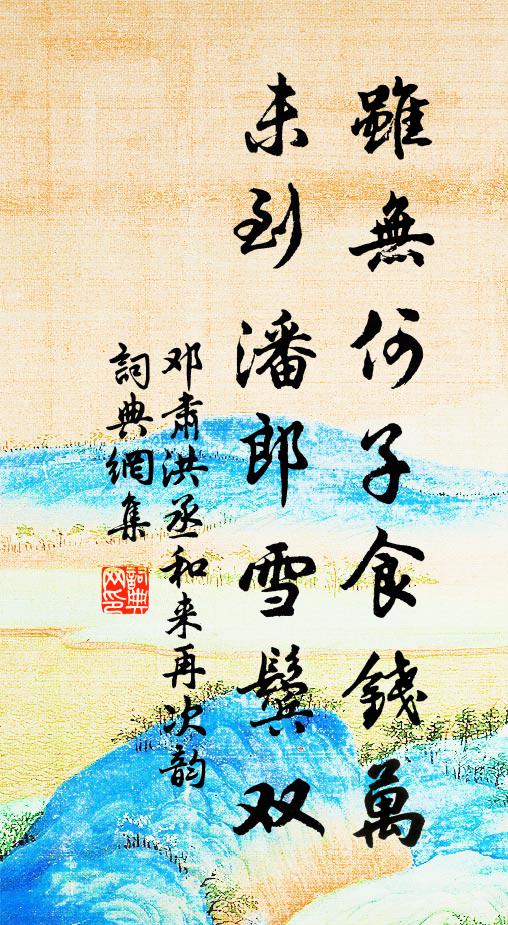 雖無何子食錢萬
未到潘郎雪鬓双
邓肅洪丞和来再次韵
詞典網集
詞典网印